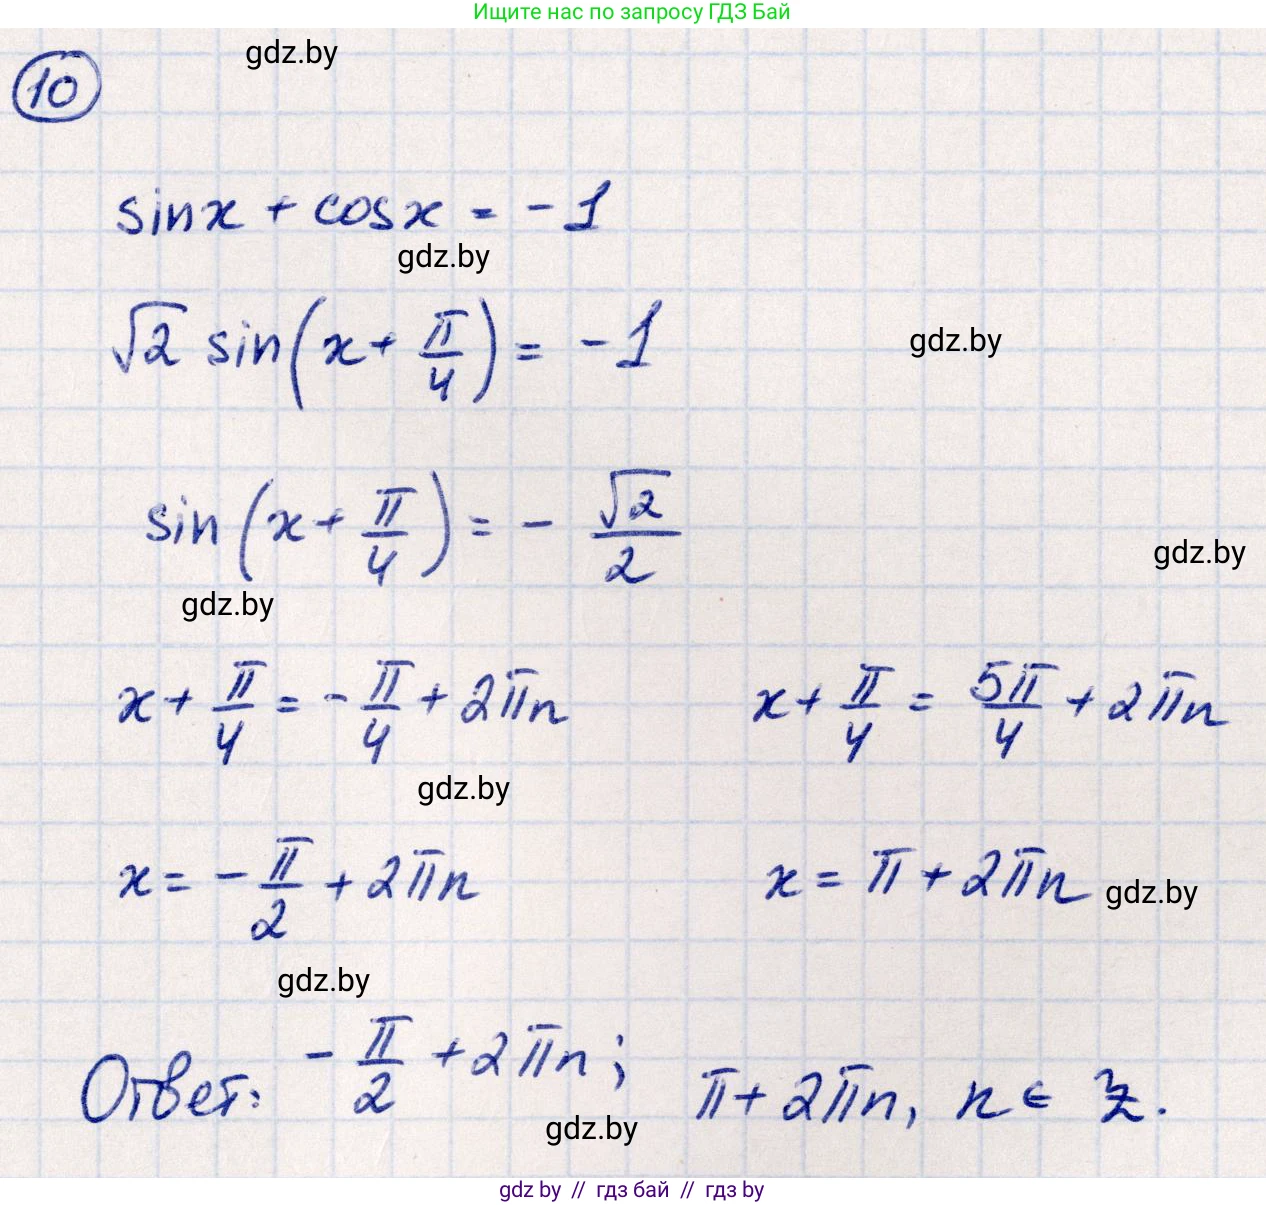 Ищите нас по запросу ГДЗ Бай
gdz.by
10
sinx + cosx = -1
gdz.by
√2 sin(x + π/4) = -1
gdz.by
sin(x + π/4) = - √2/2
gdz.by
gdz.by
x + π/4 = - π/4 + 2πn x + π/4 = 5π/4 + 2πn
gdz.by
x = - π/2 + 2πn x = π + 2πn
gdz.by
gdz.by
Ответ: - π/2 + 2πn; π + 2πn, n ∈ Z.
gdz.by
gdz by // гдз бай // гдз by